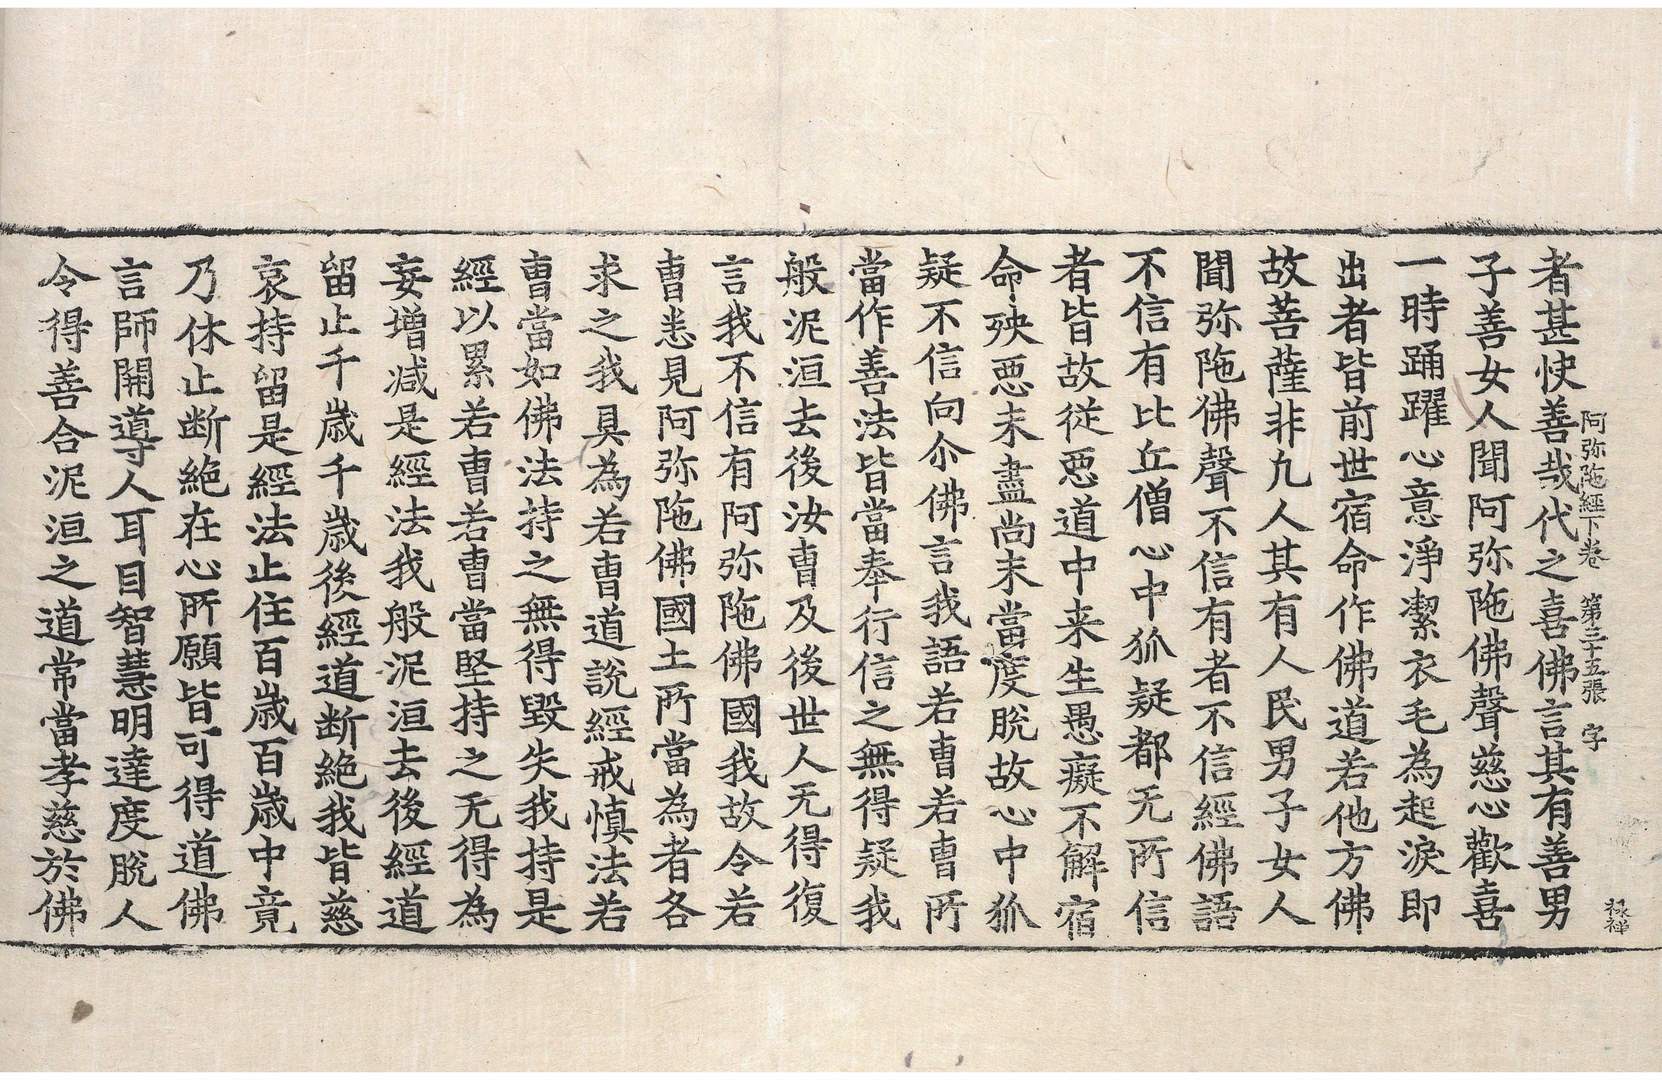 阿弥陁經下卷 第三十五張 字
者甚快善哉代之喜佛言其有善男
子善女人聞阿弥陁佛聲慈心歡喜
一時踊躍心意淨潔衣毛為起淚即
出者皆前世宿命作佛道若他方佛
故菩薩非凢人其有人民男子女人
聞弥陁佛聲不信有者不信經佛語
不信有比丘僧心中狐疑都无所信
者皆故従惡道中来生愚癡不解宿
命殃惡未盡尚未當度脫故心中狐
疑不信向尒佛言我語若曹若曹所
當作善法皆當奉行信之無得疑我
般泥洹去後汝曹及後世人无得復
言我不信有阿弥陁佛國我故令若
曹悉見阿弥陁佛國土所當為者各
求之我具為若曹道說經戒慎法若
曹當如佛法持之無得毀失我持是
經以累若曹若曹當堅持之无得為
妄增減是經法我般泥洹去後經道
留止千歲千歲後經道断絶我皆慈
哀持留是經法止住百歲百歲中竟
乃休止断絶在心所願皆可得道佛
言師開導人耳目智慧明達度脫人
令得善合泥洹之道常當孝慈於佛